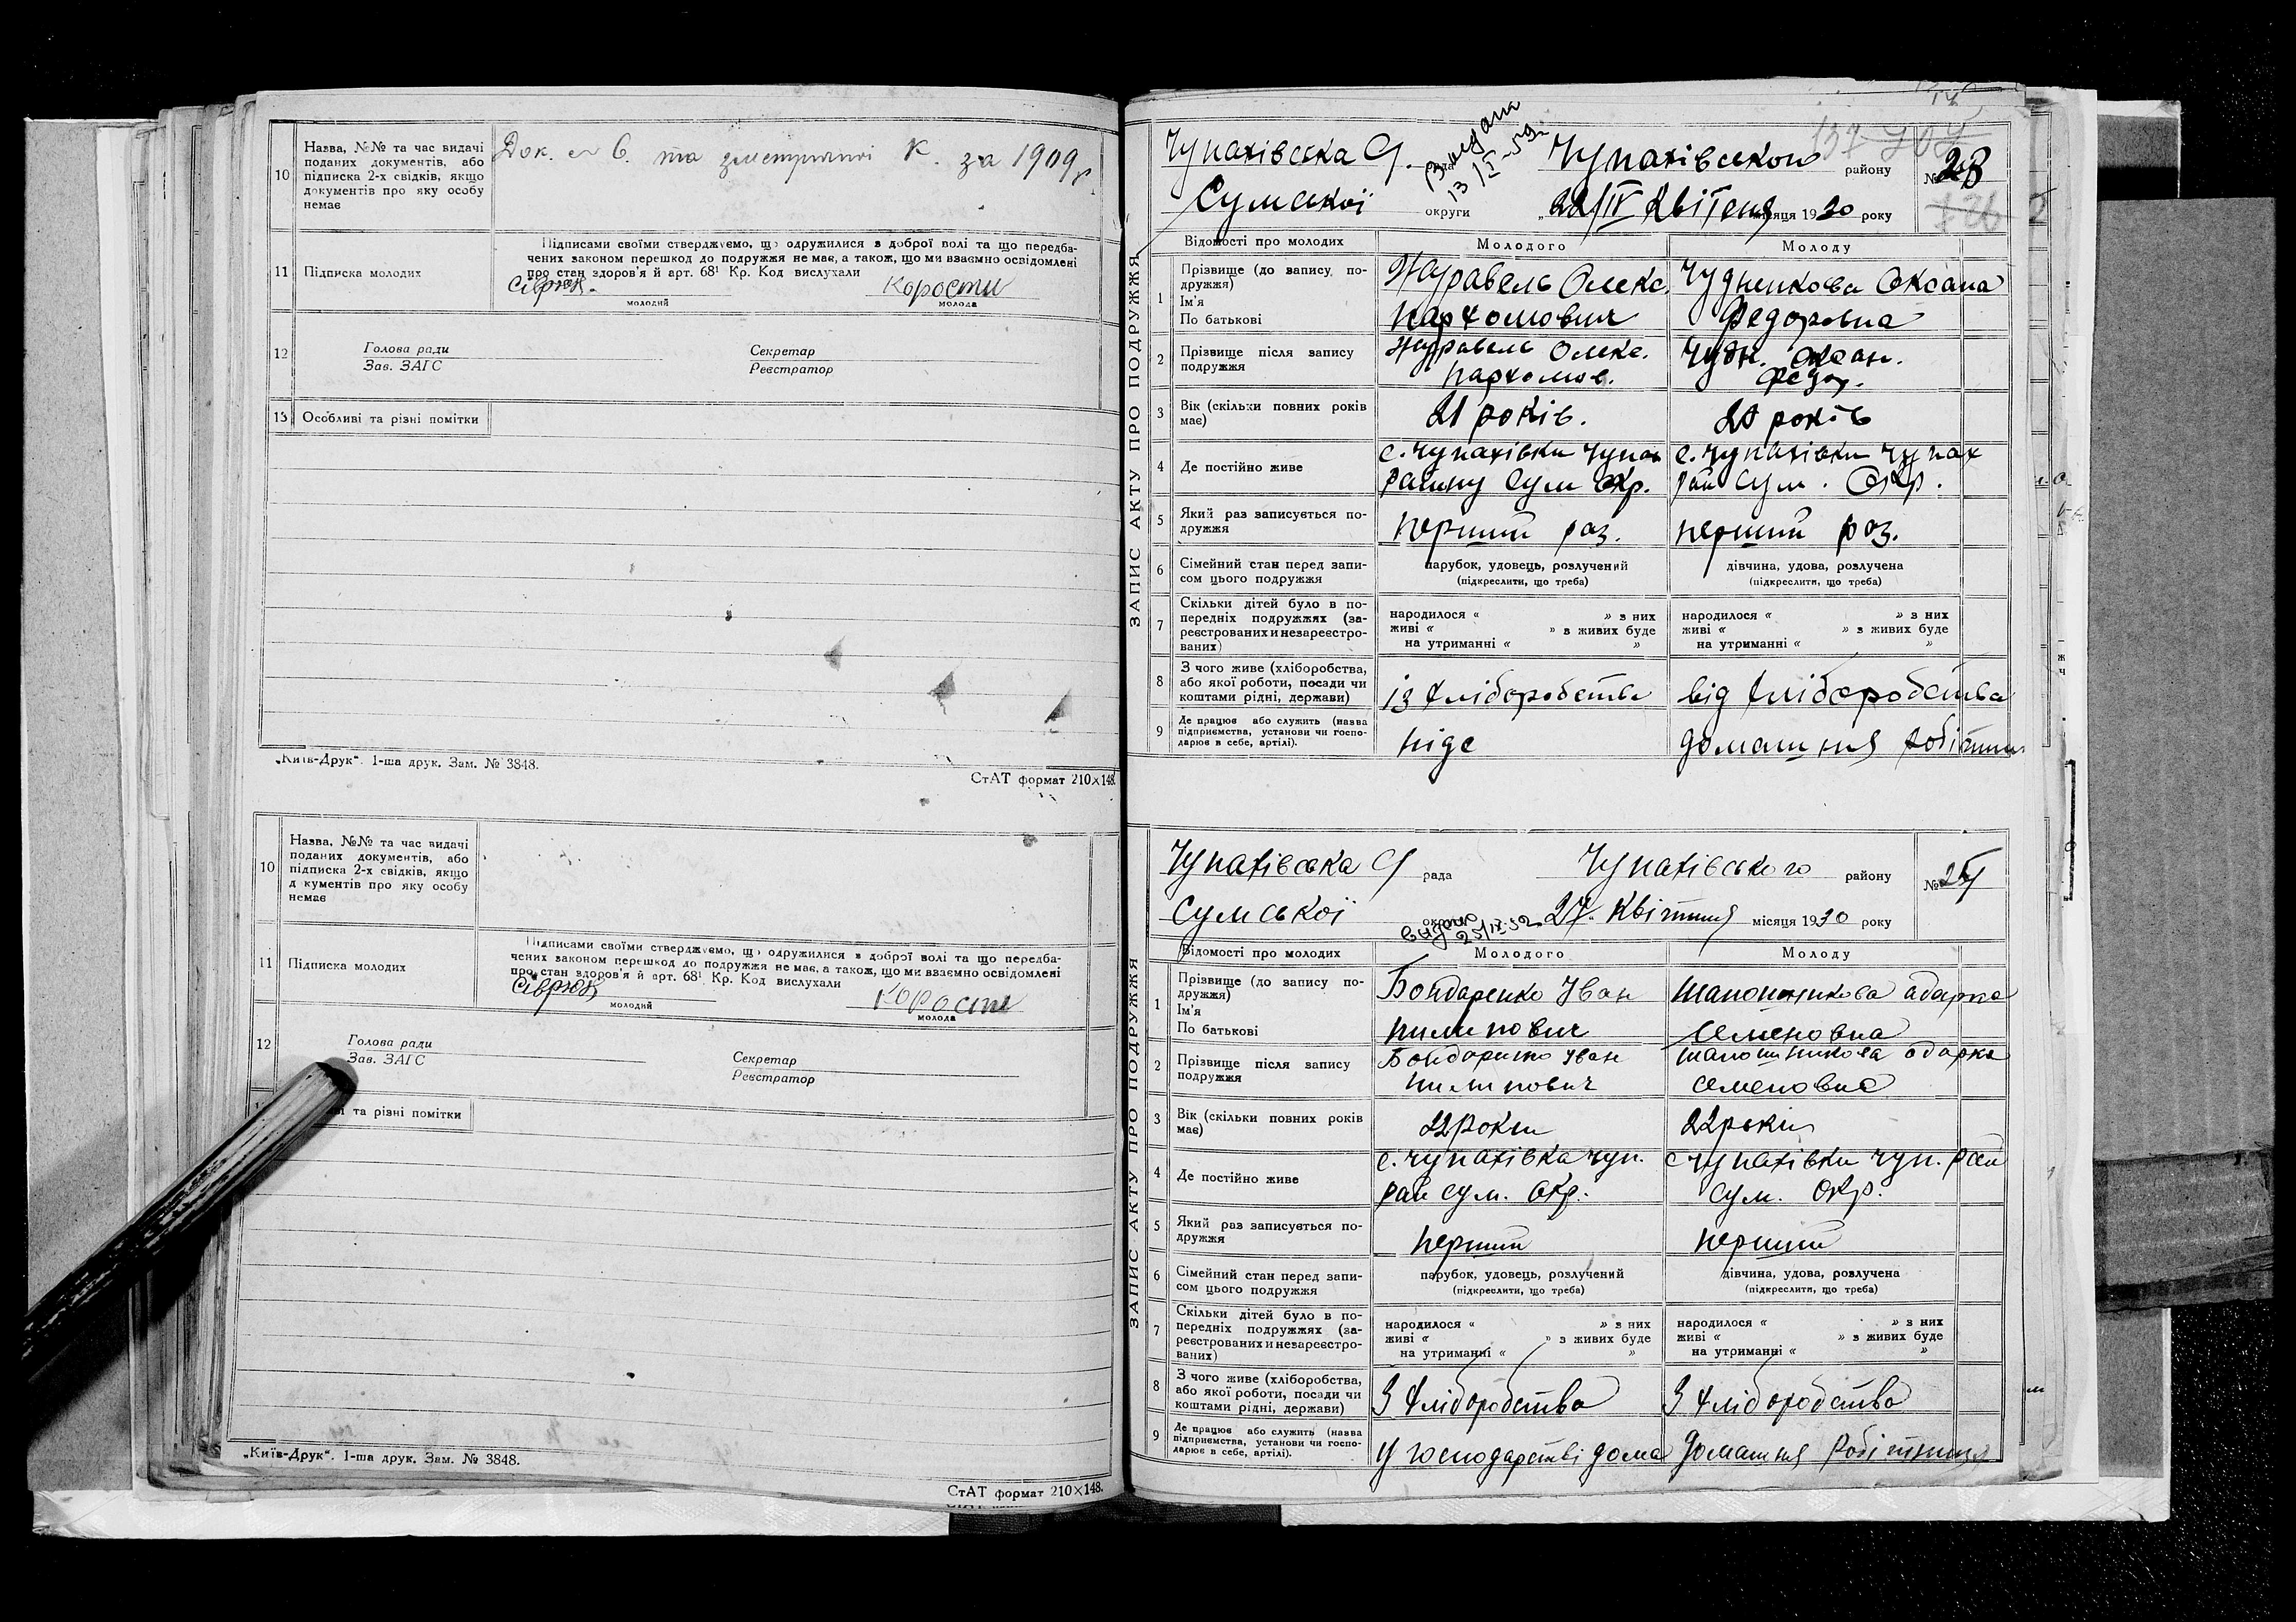 10 Назва, №№ та час видачі
поданих документів, або
підписка 2-х свідків, якщо
документів про яку особу
немає
Док. № 6. та за 1909 р.
11 Підписка молодих
Підписами своїми стверджуємо, що одружилися з доброї волі та що передба-
чених законом перешкод до подружжя немає, а також, що ми взаємно освідомлені
про стан здоров'я й арт. 68¹ Кр. Код вислухали
Сіврюк. Корости
молодий молода
12 Голова ради Секретар
Зав. ЗАГС Реєстратор
13 Особливі та різні помітки
„Київ-Друк“. 1-ша друк. Зам. № 3848.
СтАТ формат 210×148.
10 Назва, №№ та час видачі
поданих документів, або
підписка 2-х свідків, якщо
д кументів про яку особу
немає
11 Підписка молодих
Підписами своїми стверджуємо, що одружилися з доброї волі та що передба-
чених законом перешкод до подружжя немає, а також, що ми взаємно освідомлені
про стан здоров'я й арт. 68¹ Кр. Код вислухали
Сіврюк Корости
молодий молода
12 Голова ради Секретар
Зав. ЗАГС Реєстратор
та різні помітки
„Київ-Друк“. 1-ша друк. Зам. № 3848.
СтАТ формат 210×148.
ЗАПИС АКТУ ПРО ПОДРУЖЖЯ
Чупахівська С. Чупахівського району № 28
видана
13/II-59.
Сумської округи „22/IV Квітеня місяця 1930 року
Відомості про молодих Молодого Молоду
1 Прізвище (до запису по-
дружжя)
Ім'я
По батькові
Журавель Олекс. Чудненкова Оксана
Пархомович Федоровна
2 Прізвище після запису
подружжя
Журавель Олекс. Чудн. Оксан.
Пархомов. Федор.
3 Вік (скільки повних років
має)
21 років. 20 років
4 Де постійно живе
с. Чупахівки Чупах с. Чупахівки Чупах
району Сум Окр. рай Сум. Окр.
5 Який раз записується по-
дружжя
перший раз. перший раз.
6 Сімейний стан перед запи-
сом цього подружжя
парубок, удовець, розлучений дівчина, удова, розлучена
(підкреслити, що треба) (підкреслити, що треба)
7 Скільки дітей було в по-
передніх подружжях (за-
реєстрованих и незареєстро-
ваних)
народилося « » з них народилося « » з них
живі « » з живих буде живі « » з живих буде
на утриманні « » на утриманні « »
8 З чого живе (хліборобства,
або якої роботи, посади чи
коштами рідні, держави)
із хліборобства від хліборобства
9 Де працює або служить (назва
підприємства, установи чи госпо-
дарює в себе, артілі).
ніде домашня робітниц
ЗАПИС АКТУ ПРО ПОДРУЖЖЯ
Чупахівська С рада Чупахівського району №
Сумської округи 27. Квітня місяця 1930 року
видано
25/IX-52
Відомості про молодих Молодого Молоду
1 Прізвище (до запису по-
дружжя)
Ім'я
По батькові
Бондаренко Іван Шапошникова Адарка
Пилипович Семеновна
2 Прізвище після запису
подружжя
Бондаренко Іван Шапошникова Адарка
Пилипович Семеновна
3 Вік (скільки повних років
має)
22 роки 22 роки
4 Де постійно живе
с. Чупахівка Чуп. с Чупахівки Чуп. рай
рай Сум. Окр. Сум. Окр.
5 Який раз записується по-
дружжя
перший перший
6 Сімейний стан перед запи-
сом цього подружжя
парубок, удовець, розлучений дівчина, удова, розлучена
(підкреслити, що треба) (підкреслити, що треба)
7 Скільки дітей було в по-
передніх подружжях (за-
реєстрованих и незареєстро-
ваних)
народилося « » з них народилося « » з них
живі « » з живих буде живі « » з живих буде
на утриманні « » на утриманні « »
8 З чого живе (хліборобства,
або якої роботи, посади чи
коштами рідні, держави)
З хліборобства З хліборобства
9 Де працює або служить (назва
підприємства, установи чи госпо-
дарює в себе, артілі).
у господарстві дома домашня робітниця